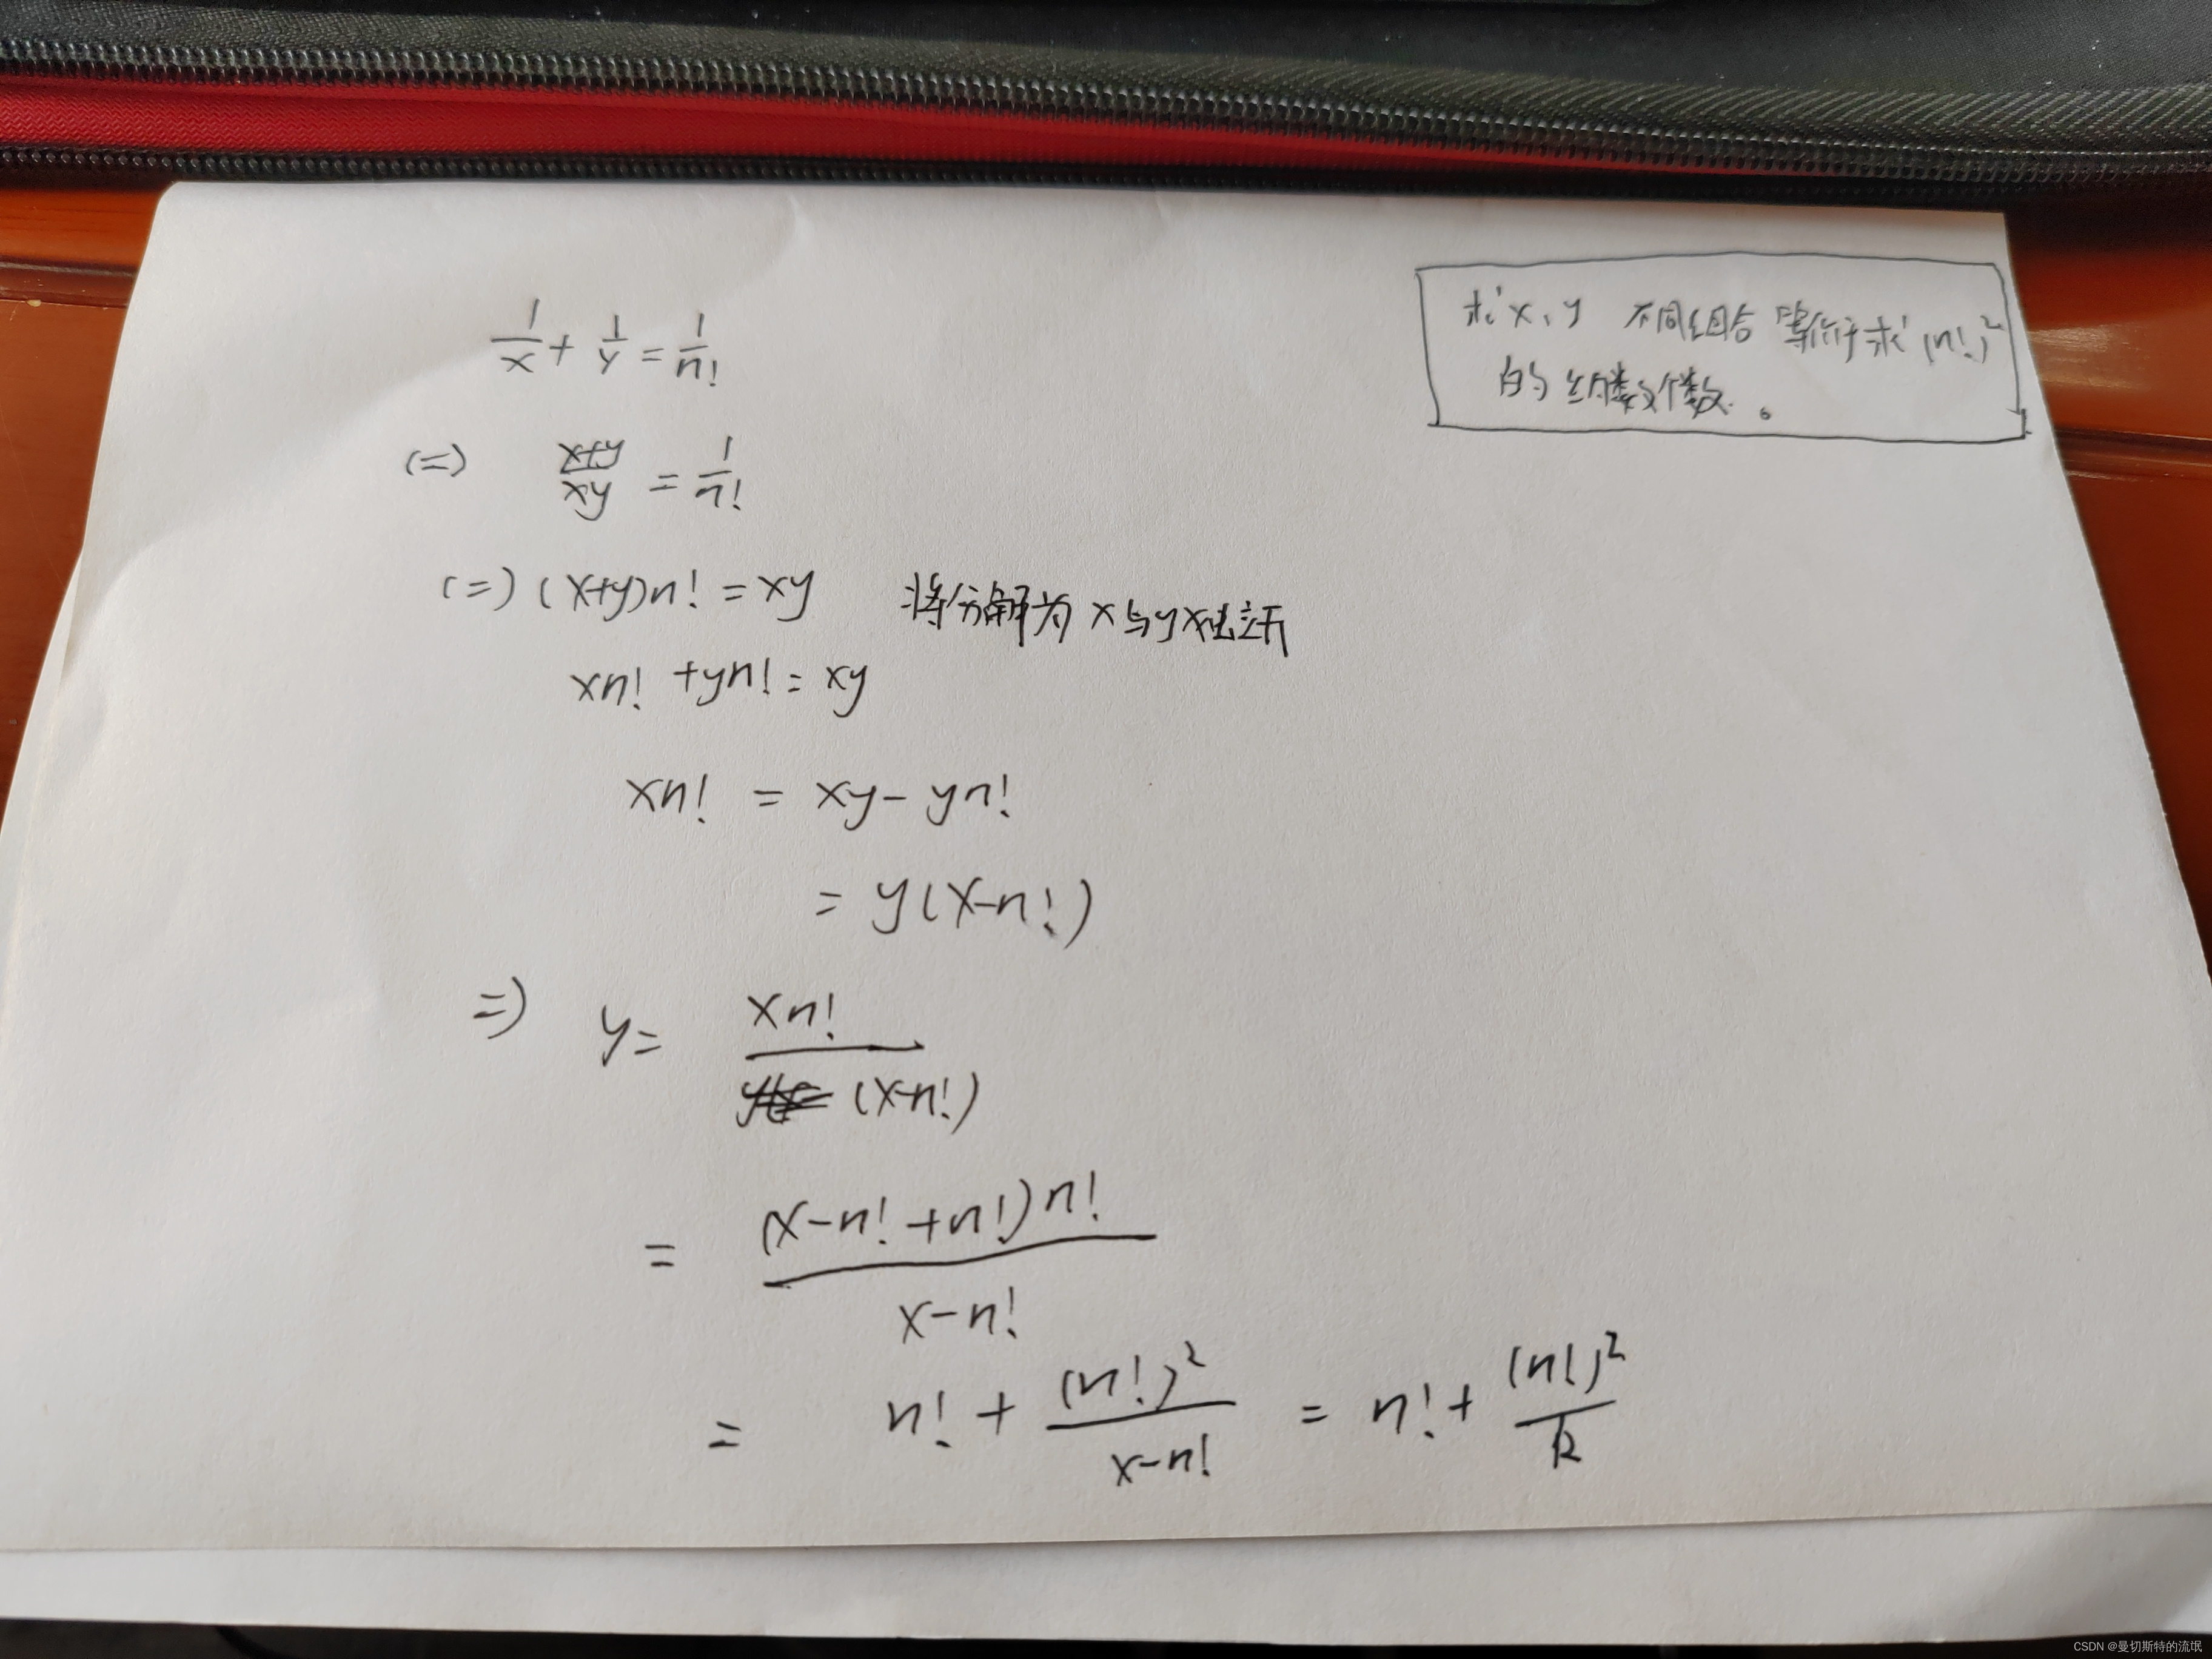 求x、y 不同组合 等价于求(n!)²
的约数个数。
1/x + 1/y = 1/n!
(=) x+y/xy = 1/n!
(=) (x+y)n! = xy 将分解为 x与y 独立开
xn! + yn! = xy
xn! = xy - yn!
= y(x-n!)
=) y= xn!/(x-n!)
= (x-n!+n!)n!/x-n!
= n! + (n!)²/x-n! = n! + (n!)²/k
CSDN @曼切斯特的流氓